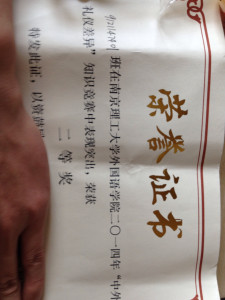 荣誉证书
班在南京理工大学外国语学院二〇一四年“中外
礼仪差异”知识竞赛中表现突出,荣获
二等奖
特发此证,以资